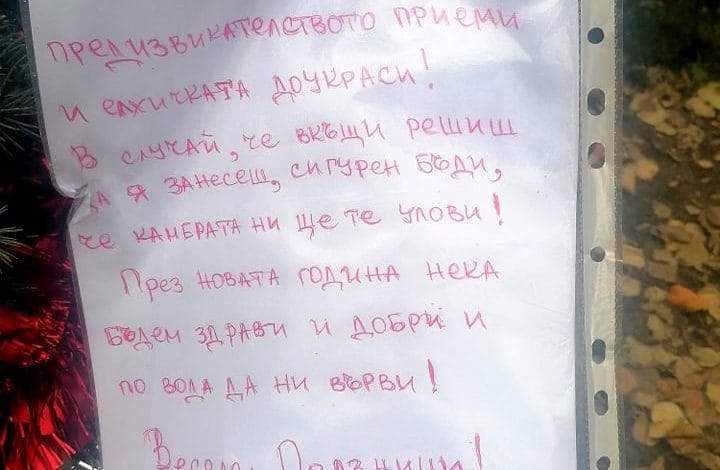 ПРЕДИЗВИКАТЕЛСТВОТО ПРИЕМИ
И ЕЛХИЧКАТА ДОУКРАСИ!
В СЛУЧАЙ, ЧЕ ВКЪЩИ РЕШИШ
ДА Я ЗАНЕСЕШ, СИГУРЕН БЪДИ,
ЧЕ КАМЕРАТА НИ ЩЕ ТЕ УЛОВИ!
През НОВАТА ГОДИНА НЕКА
БЪДЕМ ЗДРАВИ И ДОБРИ И
ПО ВОДА ДА НИ ВЪРВИ!
Весели Празници!